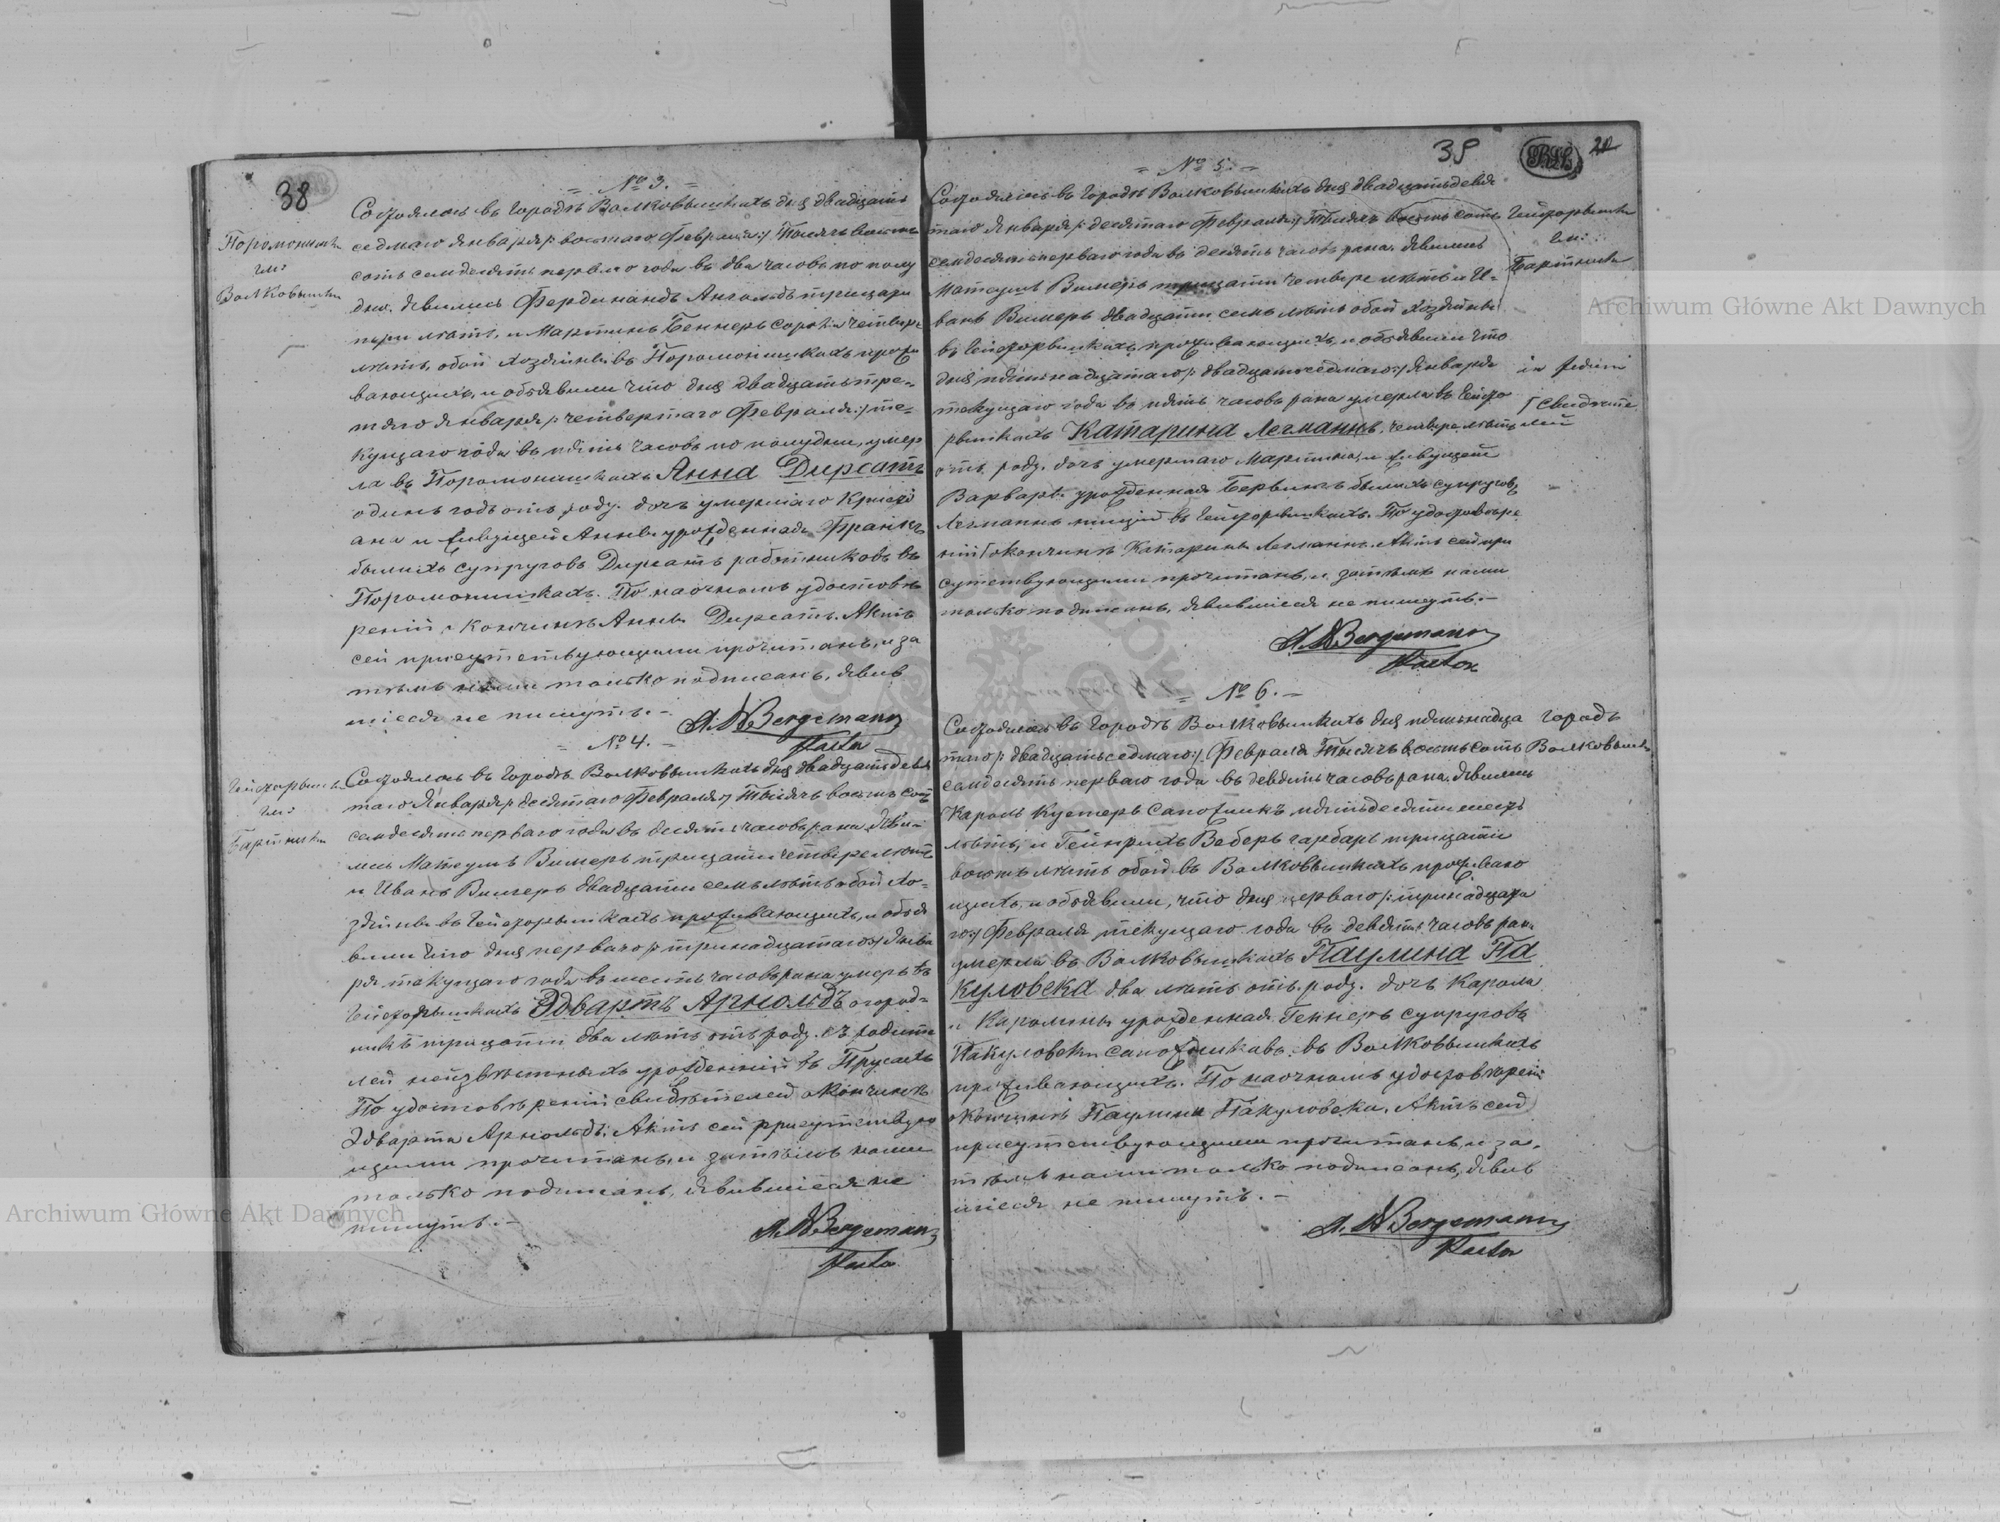 38
= № 3. =
Поромонишки
гмз
Волковышки
Состоялось въ городѣ Волковышкахъ дня двадцать
седмаго Января /: восьмаго Февраля :/ Тысяча восемь
сотъ семдесятъ перваго года въ два часовъ по полу
дни. Явились Фердинандъ Ангольдъ трицати
три лѣтъ, и Мартинъ Беннеръ сорока четыре
лѣтъ, обой хозяины въ Поромонишкахъ прожи
вающихъ, и объявили что дня двадцать тре-
тяго Января /: четвертаго Февраля :/ те-
кущаго года въ пять часовъ по полудни, умер
ла въ Поромонишкахъ Анна Дирсатъ
одинъ годъ отъ роду. дочь умершаго Кристі
ана и живущей Анны урожденная Франкъ
бывихъ супруговъ Дирсатъ работниковъ въ
Поромонишкахъ. По наочномъ удостовѣ
реніи о кончинѣ Анны Дирсатъ. Актъ
сей присутствующими прочитанъ, и за
тѣмъ нами только подписанъ, явив
шіеся не пишутъ. –
A. W Bergemann
Pastor
= № 4. =
гмз
Состоялось въ городѣ Волковышкахъ дня двадцать девя
таго Января /: десятаго Февраля :/ Тысяча восемь сотъ
семдесятъ перваго года въ десять часовъ рана. Яви
лись Матеушъ Вимеръ трицати четыре лѣтъ
и Иванъ Вимеръ двадцати семь лѣтъ обой хо-
зяины въ проживающихъ, и объя
вили что дня перваго /: тринадцатаго :/ Янва
ря текущаго года въ шесть часовъ рана умеръ въ
Эдвартъ Арнольдъ огород-
никъ трицати два лѣтъ отъ роду. съ родите
лей неизвѣстныхъ урожденній въ Прусахъ
По удостовѣреніи свидѣтелей о кончинѣ
Эдварта Арнольдъ. Актъ сей присутствую
щими прочитанъ, и затѣмъ нами
только подписанъ, явившіеся не
пишутъ. –
A. W Bergemann
Pastor
39
20
= № 5. =
Состоялось въ городѣ Волковышкахъ дня двадцать девя
таго Января /: десятаго Февраля :/ Тысяча восемь сотъ
гмз
семдесятъ перваго года въ десять часовъ рана. Явились
Матеушъ Вимеръ трицати четыре лѣтъ и И-
ванъ Вимеръ двадцати семь лѣтъ обой хозяины
въ проживающихъ, и объявили что
дня пятьнадцатаго /: двадцать седмаго :/ Января
текущаго года въ пять часовъ рана умерла въ
Катарина Легманнъ, четыре лѣтъ
свидѣте
лей
отъ роду. дочь умершаго Мартина, и живущей
Варвары урожденная бывихъ супругов
Легманнъ нищій въ По удостовѣре
ній о кончинѣ Катарины Легманнъ. Актъ сей при
сутствующими прочитанъ, и затѣмъ нами
только подписанъ, явившіеся не пишутъ. –
A. W Bergemann
Pastor
= № 6. –
городъ
Волковышки
Состоялось въ городѣ Волковышкахъ дня пятьнадца
таго /: двадцать седмаго :/ Февраля Тысяча восемь сотъ
семдесятъ перваго года въ девять часовъ рана. Явились
Кароль Кустеръ Сапожникъ пятьдесяти шесть
лѣтъ, и Гейнрихъ Веберъ гарбарь трицати
восемь лѣтъ обой въ Волковышкахъ проживаю
щихъ, и объявили, что дня перваго /: тринадцата
го :/ Февраля текущаго года въ девять часовъ рана
умерла въ Волковышкахъ Паулина Па
куловска два лѣтъ отъ роду. дочь Кароля
и Каролины урожденная Геннеръ супруговъ
Пакуловски сапожниковъ въ Волковышкахъ
проживающихъ. По наочномъ удостовѣреніи
о кончинѣ Паулины Пакуловски. Актъ сей
присутствующими прочитанъ, и за-
тѣмъ нами только подписанъ, явив
шіеся не пишутъ. –
A. W Bergemann
Pastor
Archiwum Główne Akt Dawnych
Archiwum Główne Akt Dawnych